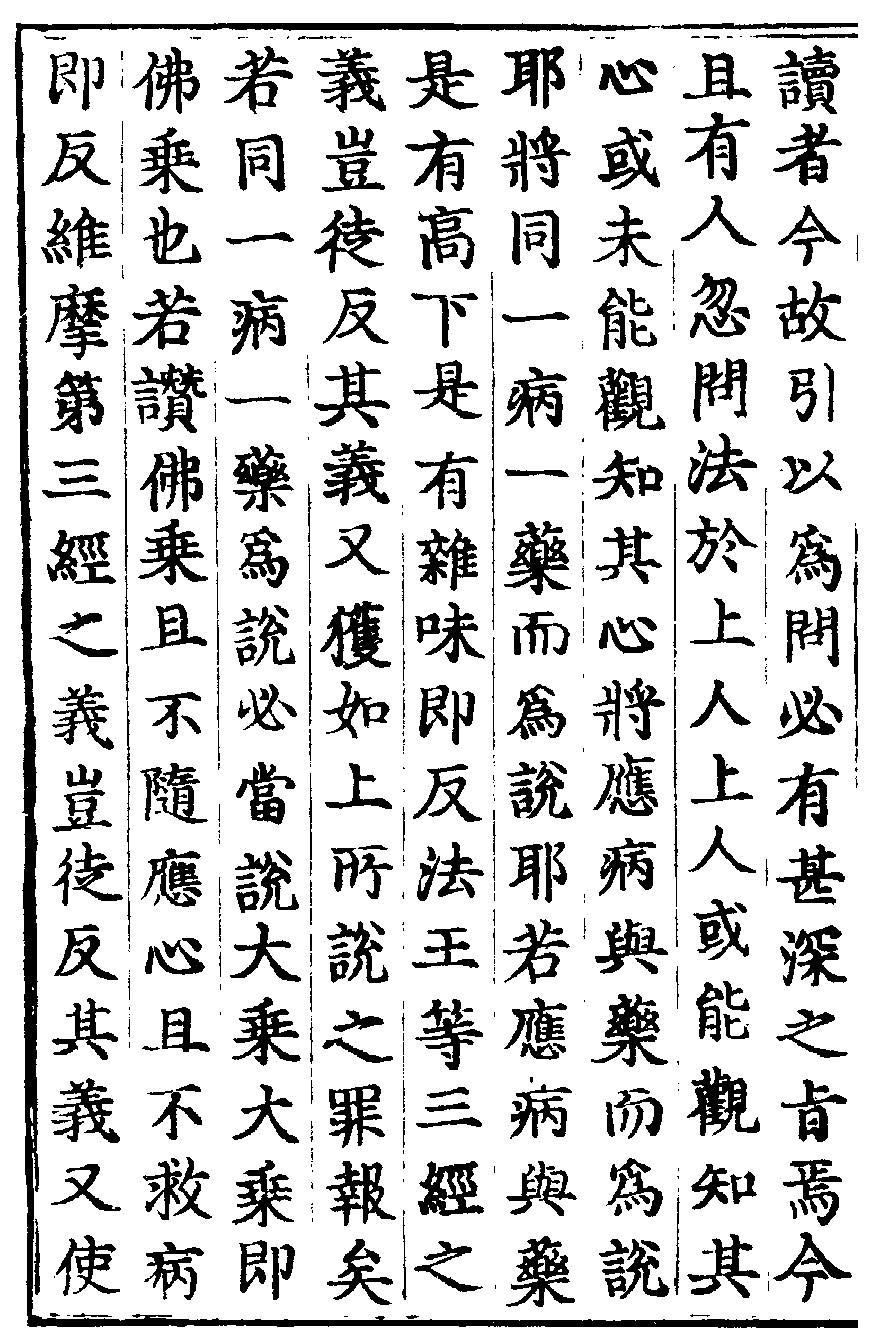 讀者今故引以爲問必有甚深之㫖焉今
且有人忽問法於上人上人或能觀知其
心或未能觀知其心將應病與藥而爲說
耶將同一病一藥而爲說耶若應病與藥
是有高下是有雜味即反法王等三經之
義豈徒反其義又獲如上所說之罪報矣
若同一病一藥爲說必當說大乘大乘即
佛乘也若讚佛乘且不隨應心且不救病
即反維摩第三經之義豈徒反其義又使